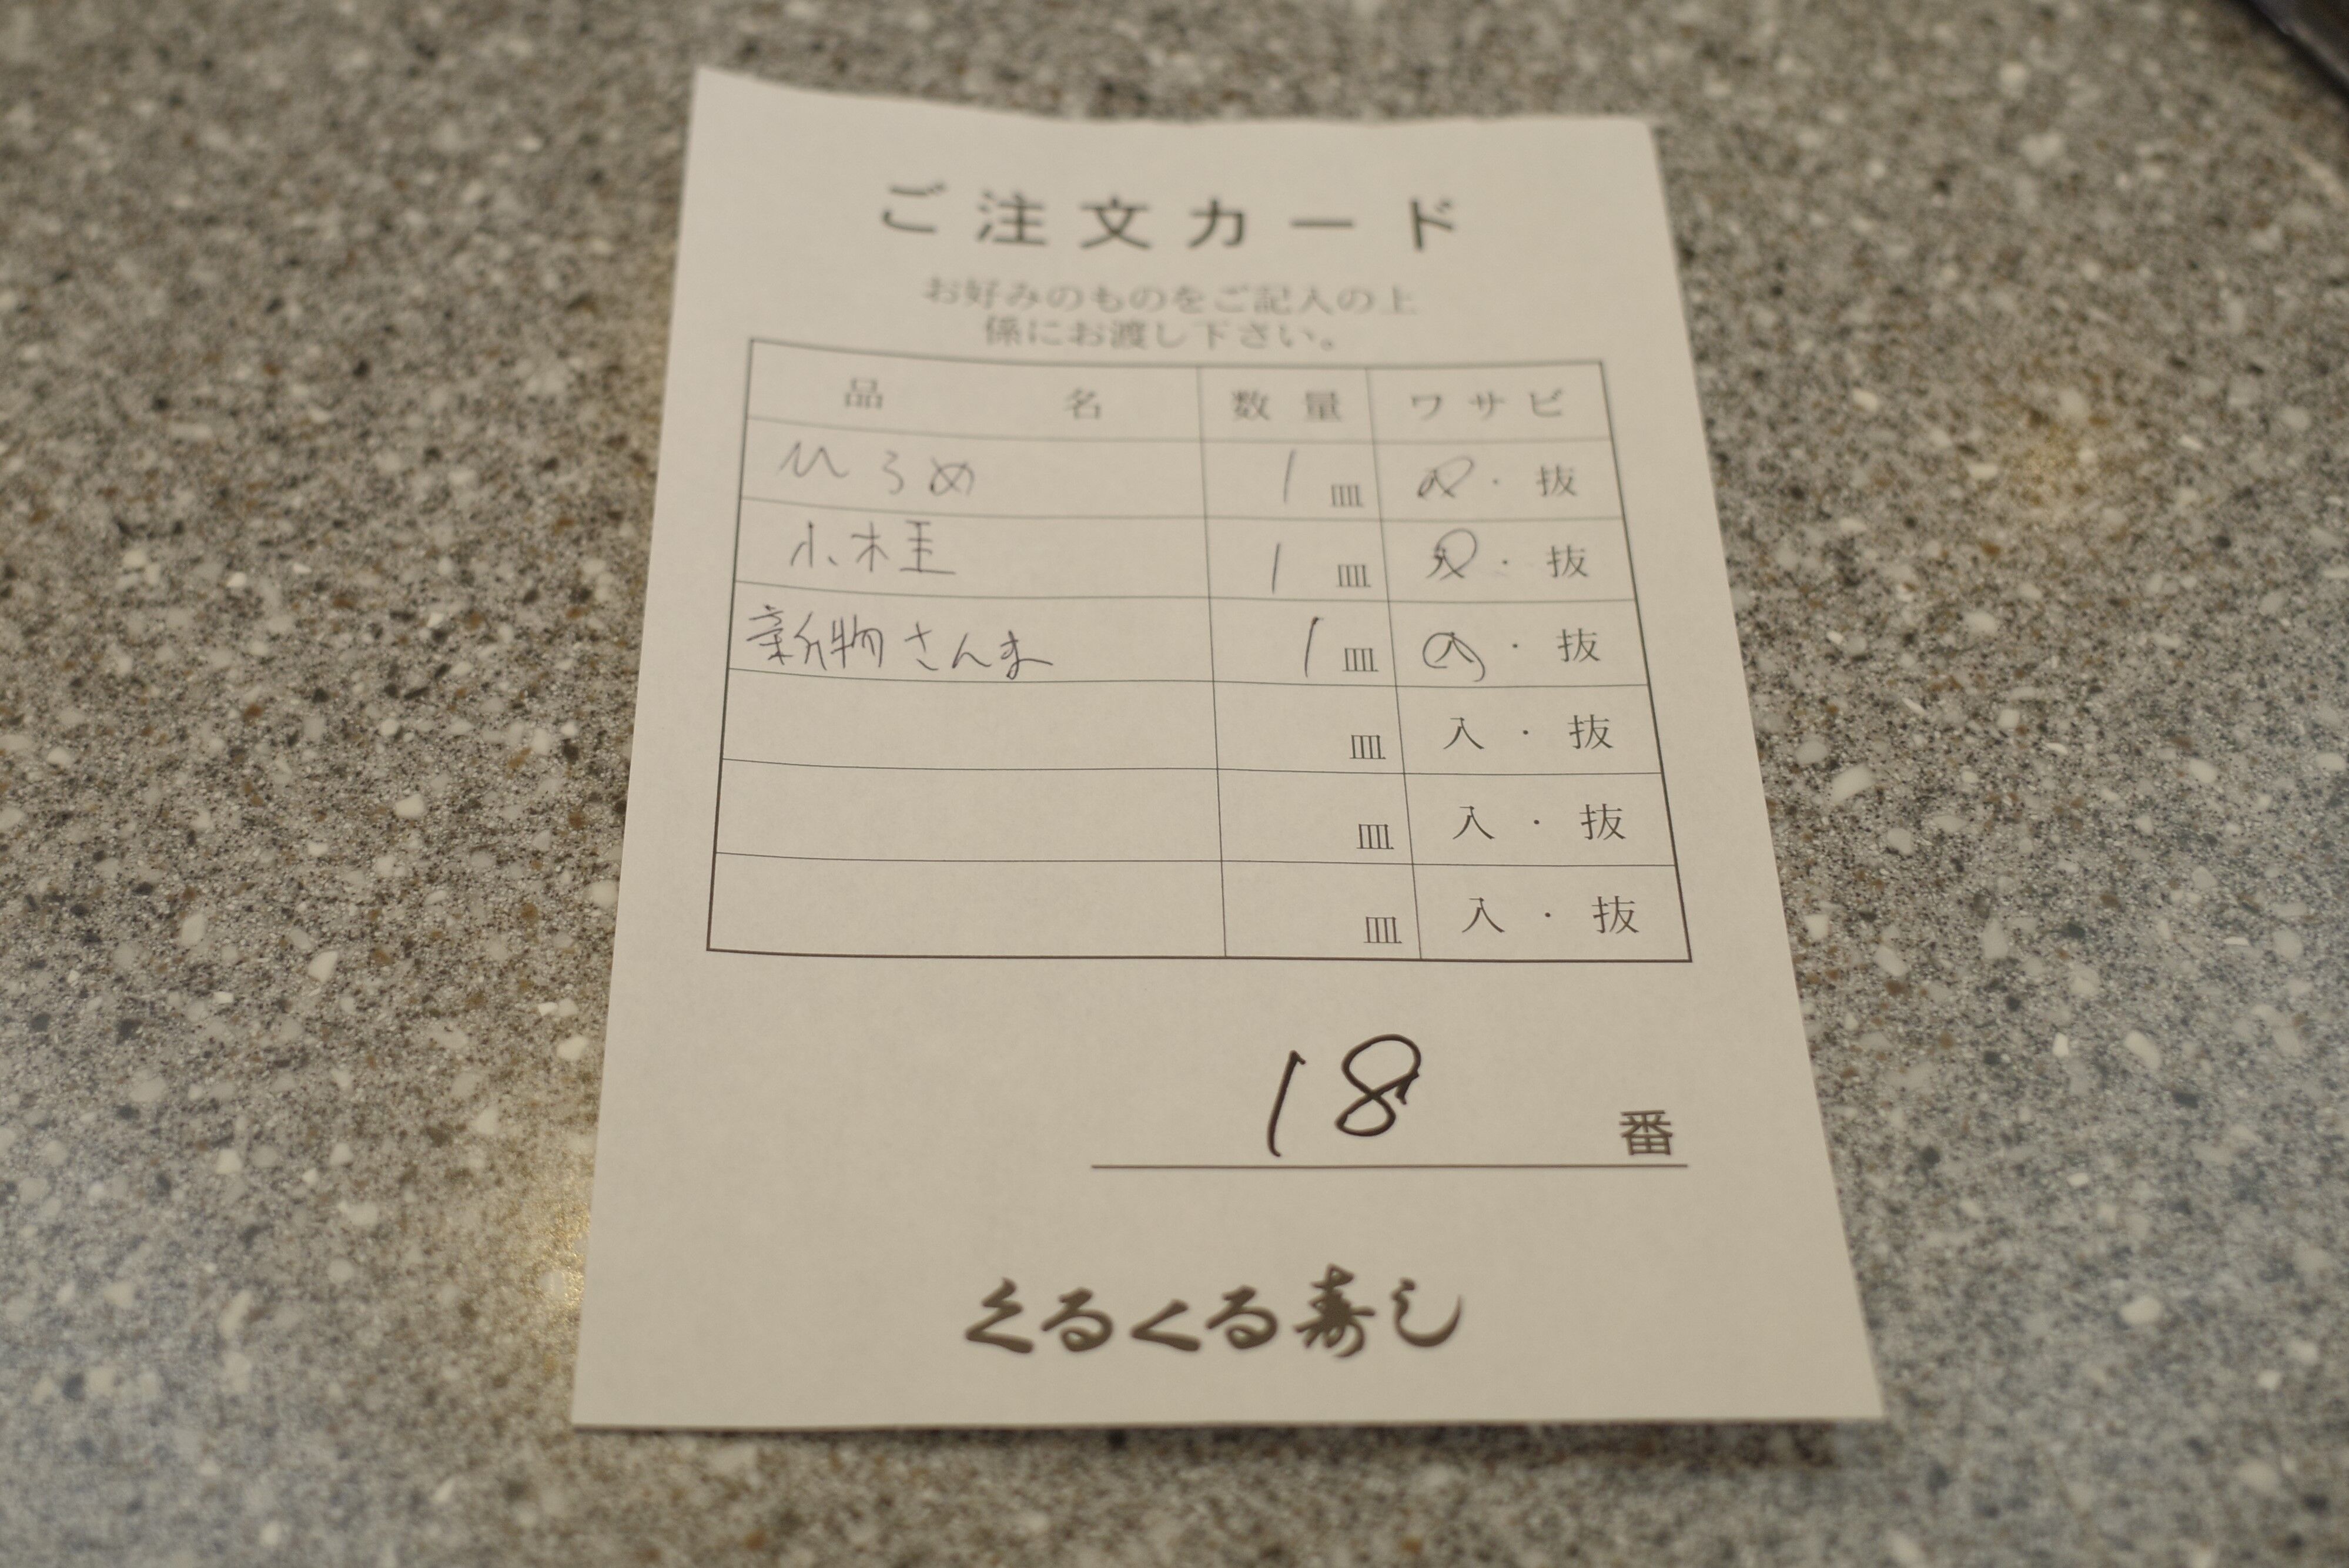 ご注文カード
お好みのものをご記入の上
係にお渡し下さい。
品名 数量 ワサビ
ひらめ 1皿 入・抜
小柱 1皿 入・抜
新物さんま 1皿 入・抜
皿 入・抜
皿 入・抜
皿 入・抜
18 番
くるくる寿し